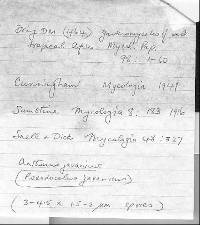 Dring DM (1964) Gasteromycetes of west
tropical Africa. Mycol. Pap.
98: 1-60
Cunningham Mycologia 1949
Sumstine Mycologia 8: 183 1916
Snell & Dick Mycologia 48: 327
javanicus
(Pseudocolus javanicus)
(3-4.5 x 1.5-2 µm spores)